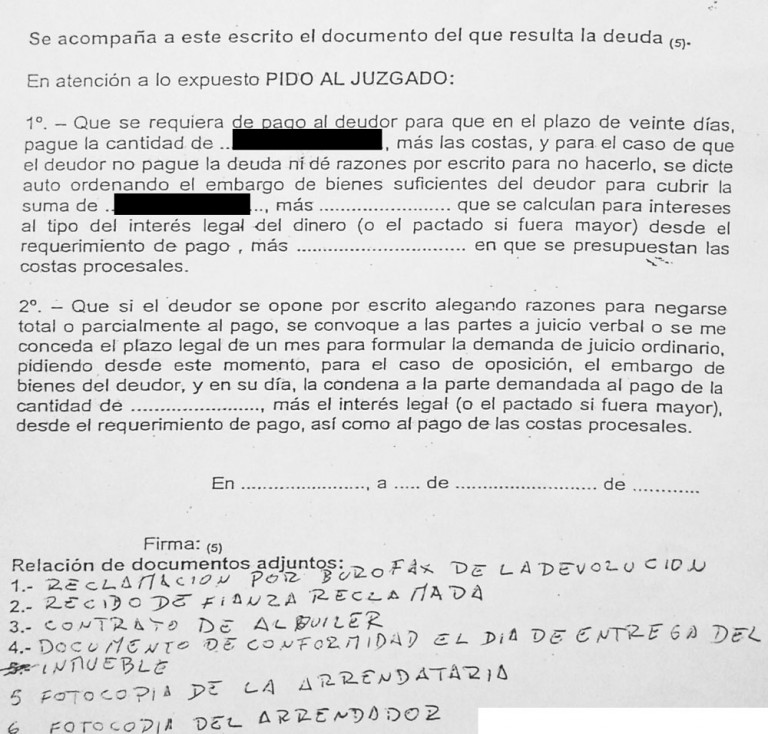 Se acompaña a este escrito el documento del que resulta la deuda (5).
En atención a lo expuesto PIDO AL JUZGADO:
1º. – Que se requiera de pago al deudor para que en el plazo de veinte días,
pague la cantidad de .. , más las costas, y para el caso de que
el deudor no pague la deuda ni dé razones por escrito para no hacerlo, se dicte
auto ordenando el embargo de bienes suficientes del deudor para cubrir la
suma de .. ..., más ........................ que se calculan para intereses
al tipo del interés legal del dinero (o el pactado si fuera mayor) desde el
requerimiento de pago , más ............................... en que se presupuestan las
costas procesales.
2º. – Que si el deudor se opone por escrito alegando razones para negarse
total o parcialmente al pago, se convoque a las partes a juicio verbal o se me
conceda el plazo legal de un mes para formular la demanda de juicio ordinario,
pidiendo desde este momento, para el caso de oposición, el embargo de
bienes del deudor, y en su día, la condena a la parte demandada al pago de la
cantidad de ......................., más el interés legal (o el pactado si fuera mayor),
desde el requerimiento de pago, así como al pago de las costas procesales.
En ......................, a ..... de ......................... de ............
Firma: (5)
Relación de documentos adjuntos:
1.- RECLAMACION POR BUROFAX DE LA DEVOLUCION
2.- RECIBO DE FIANZA RECLAMADA
3.- CONTRATO DE ALQUILER
4.- DOCUMENTO DE CONFORMIDAD EL DIA DE ENTREGA DEL
INMUEBLE
5 FOTOCOPIA DE LA ARRENDATARIA
6 FOTOCOPIA DEL ARRENDADOR